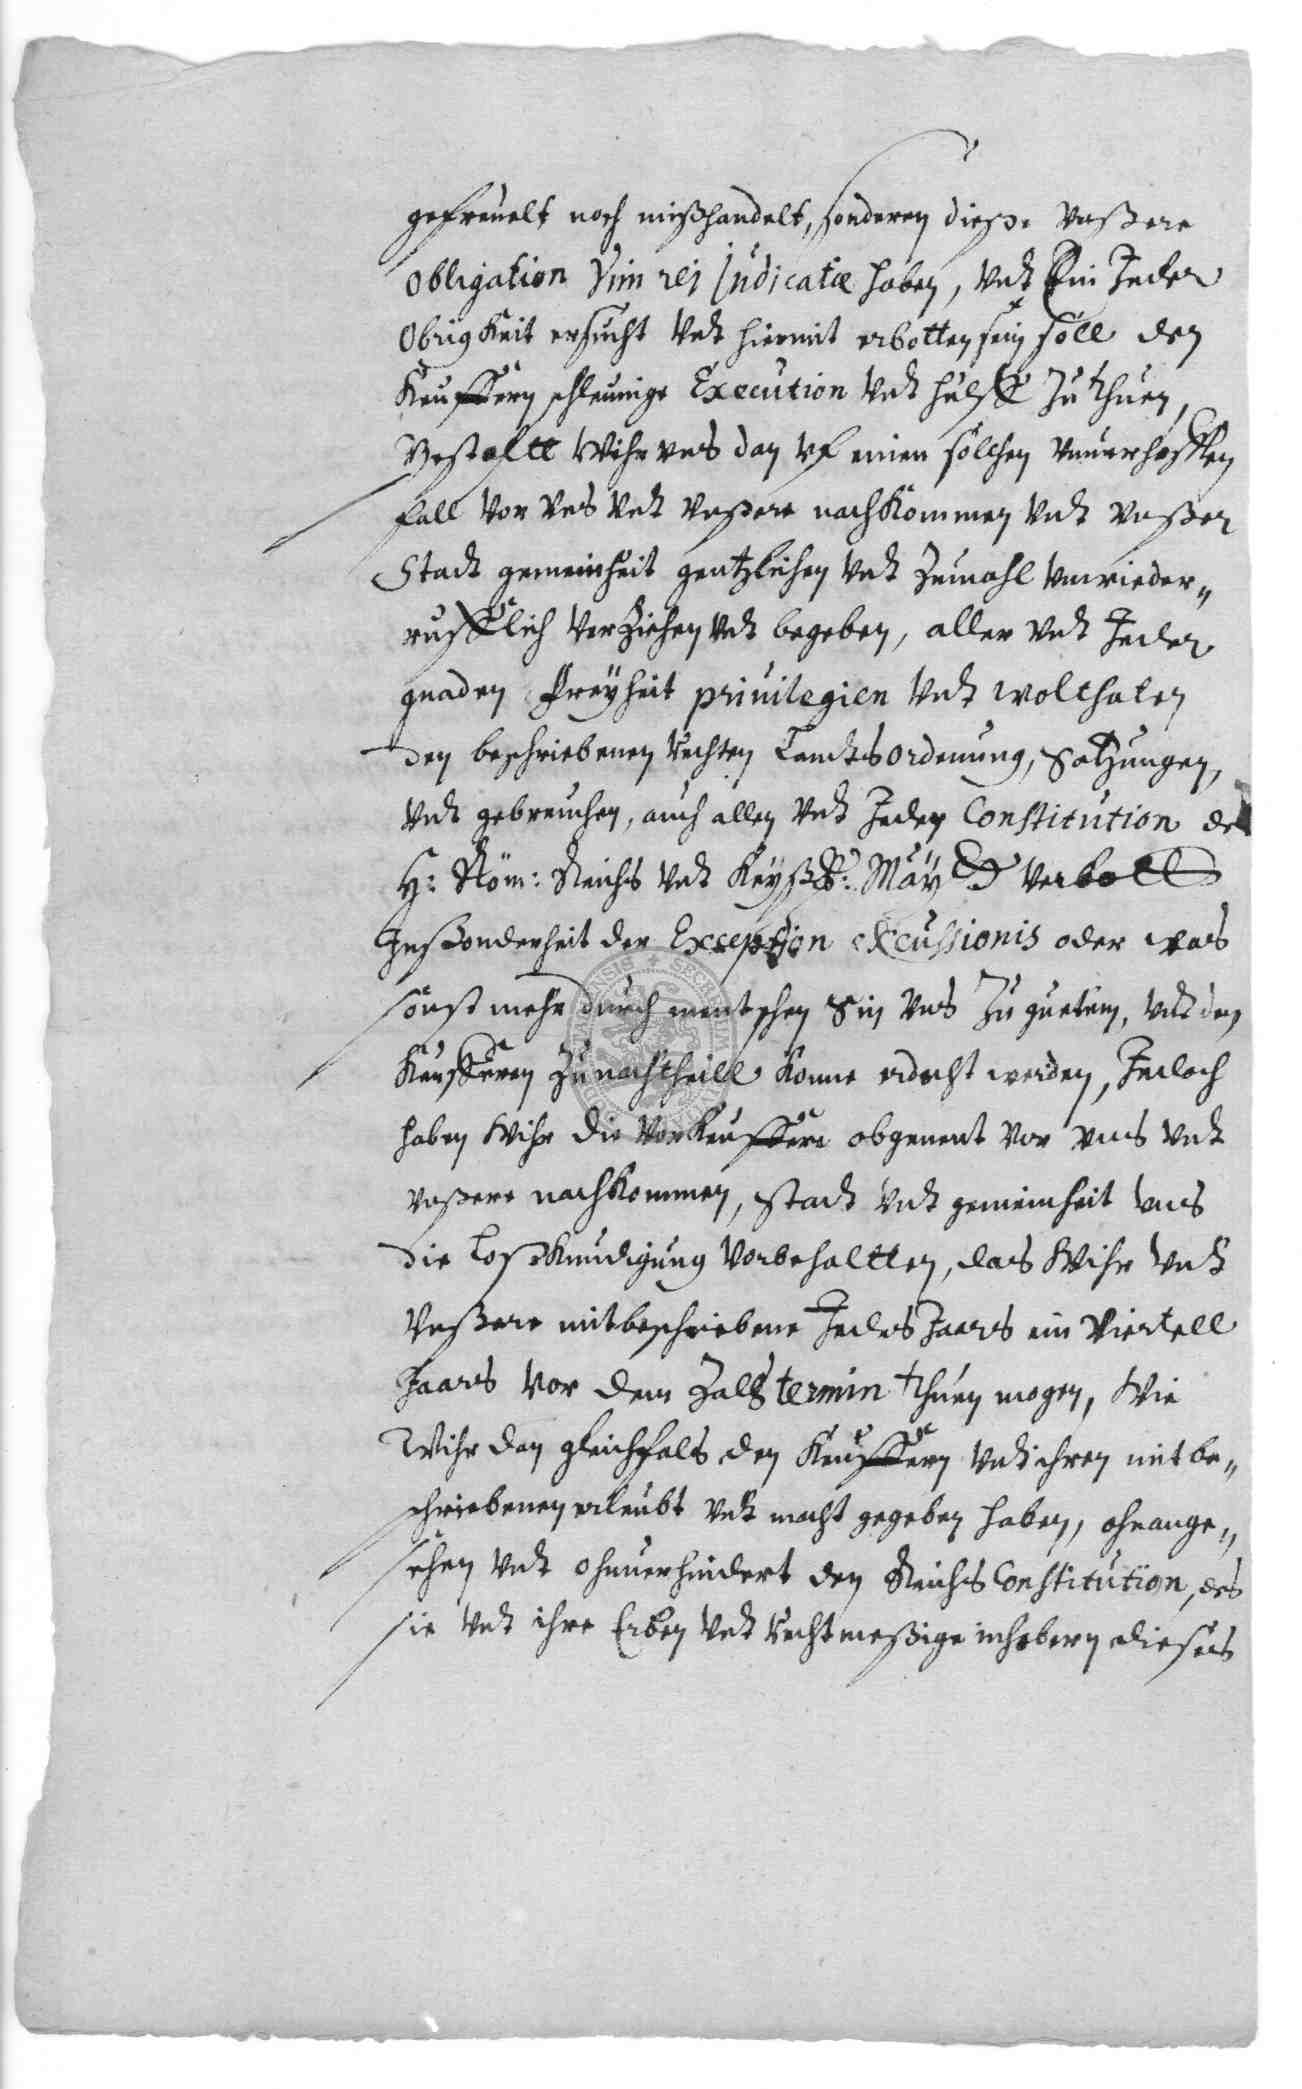 gefreuelt noch mißhandelt, sonderen diesse vnßere
obligation Vim rei Judicatæ haben, vndt Ein Jeder
Obrigkeit ersucht vndt hiermit erbotten sein soll den
Keuffern schleunige Execution vndt hulff zu thuen,
Gestaltt Wihr vns dan vf einen solchen vnuerhofften
fall vor vns vndt vnßere nachkommen vndt vnßer
Stadt gemeinheit gentzlichen vndt zumahl vnwieder„
rufflich verziehen vndt begeben, aller vndt Jeder
gnaden Freyheit priuilegien vndt wolthaten
den beschriebenen Rechten Landtsordenung, Satzungen,
vndt gebreuchen, auch allen vndt Jeden Constitution des
H: Röm: Reichs vndt Keyß: May verbott
Insonderheit der Exception excussionis oder was
sonst mehr durch mentschen Sin vns zu guetem, vndt den
Keufferen zu nachtheill konne erdacht werden, Jedoch
haben Wihr die Verkeuffere obgenent vor vns vndt
vnßere nachkommen, Stadt vndt gemeinheit vns
die Loßkundigung vorbehaltten, das Wihr vndt
vnßere mitbeschriebene Jedes Jaars ein viertell
Jaars vor dem Zalß termin thuen mogen, Wie
Wihr den gleichfals den Keuffern vndt ihren mitbe„
schriebenen erleubt vndt macht gegeben haben, ohnange„
sehen vndt ohnuerhindert den Reichs Constitution, das
sie vndt ihre Erben vndt rechtmeßige inhabern dieses